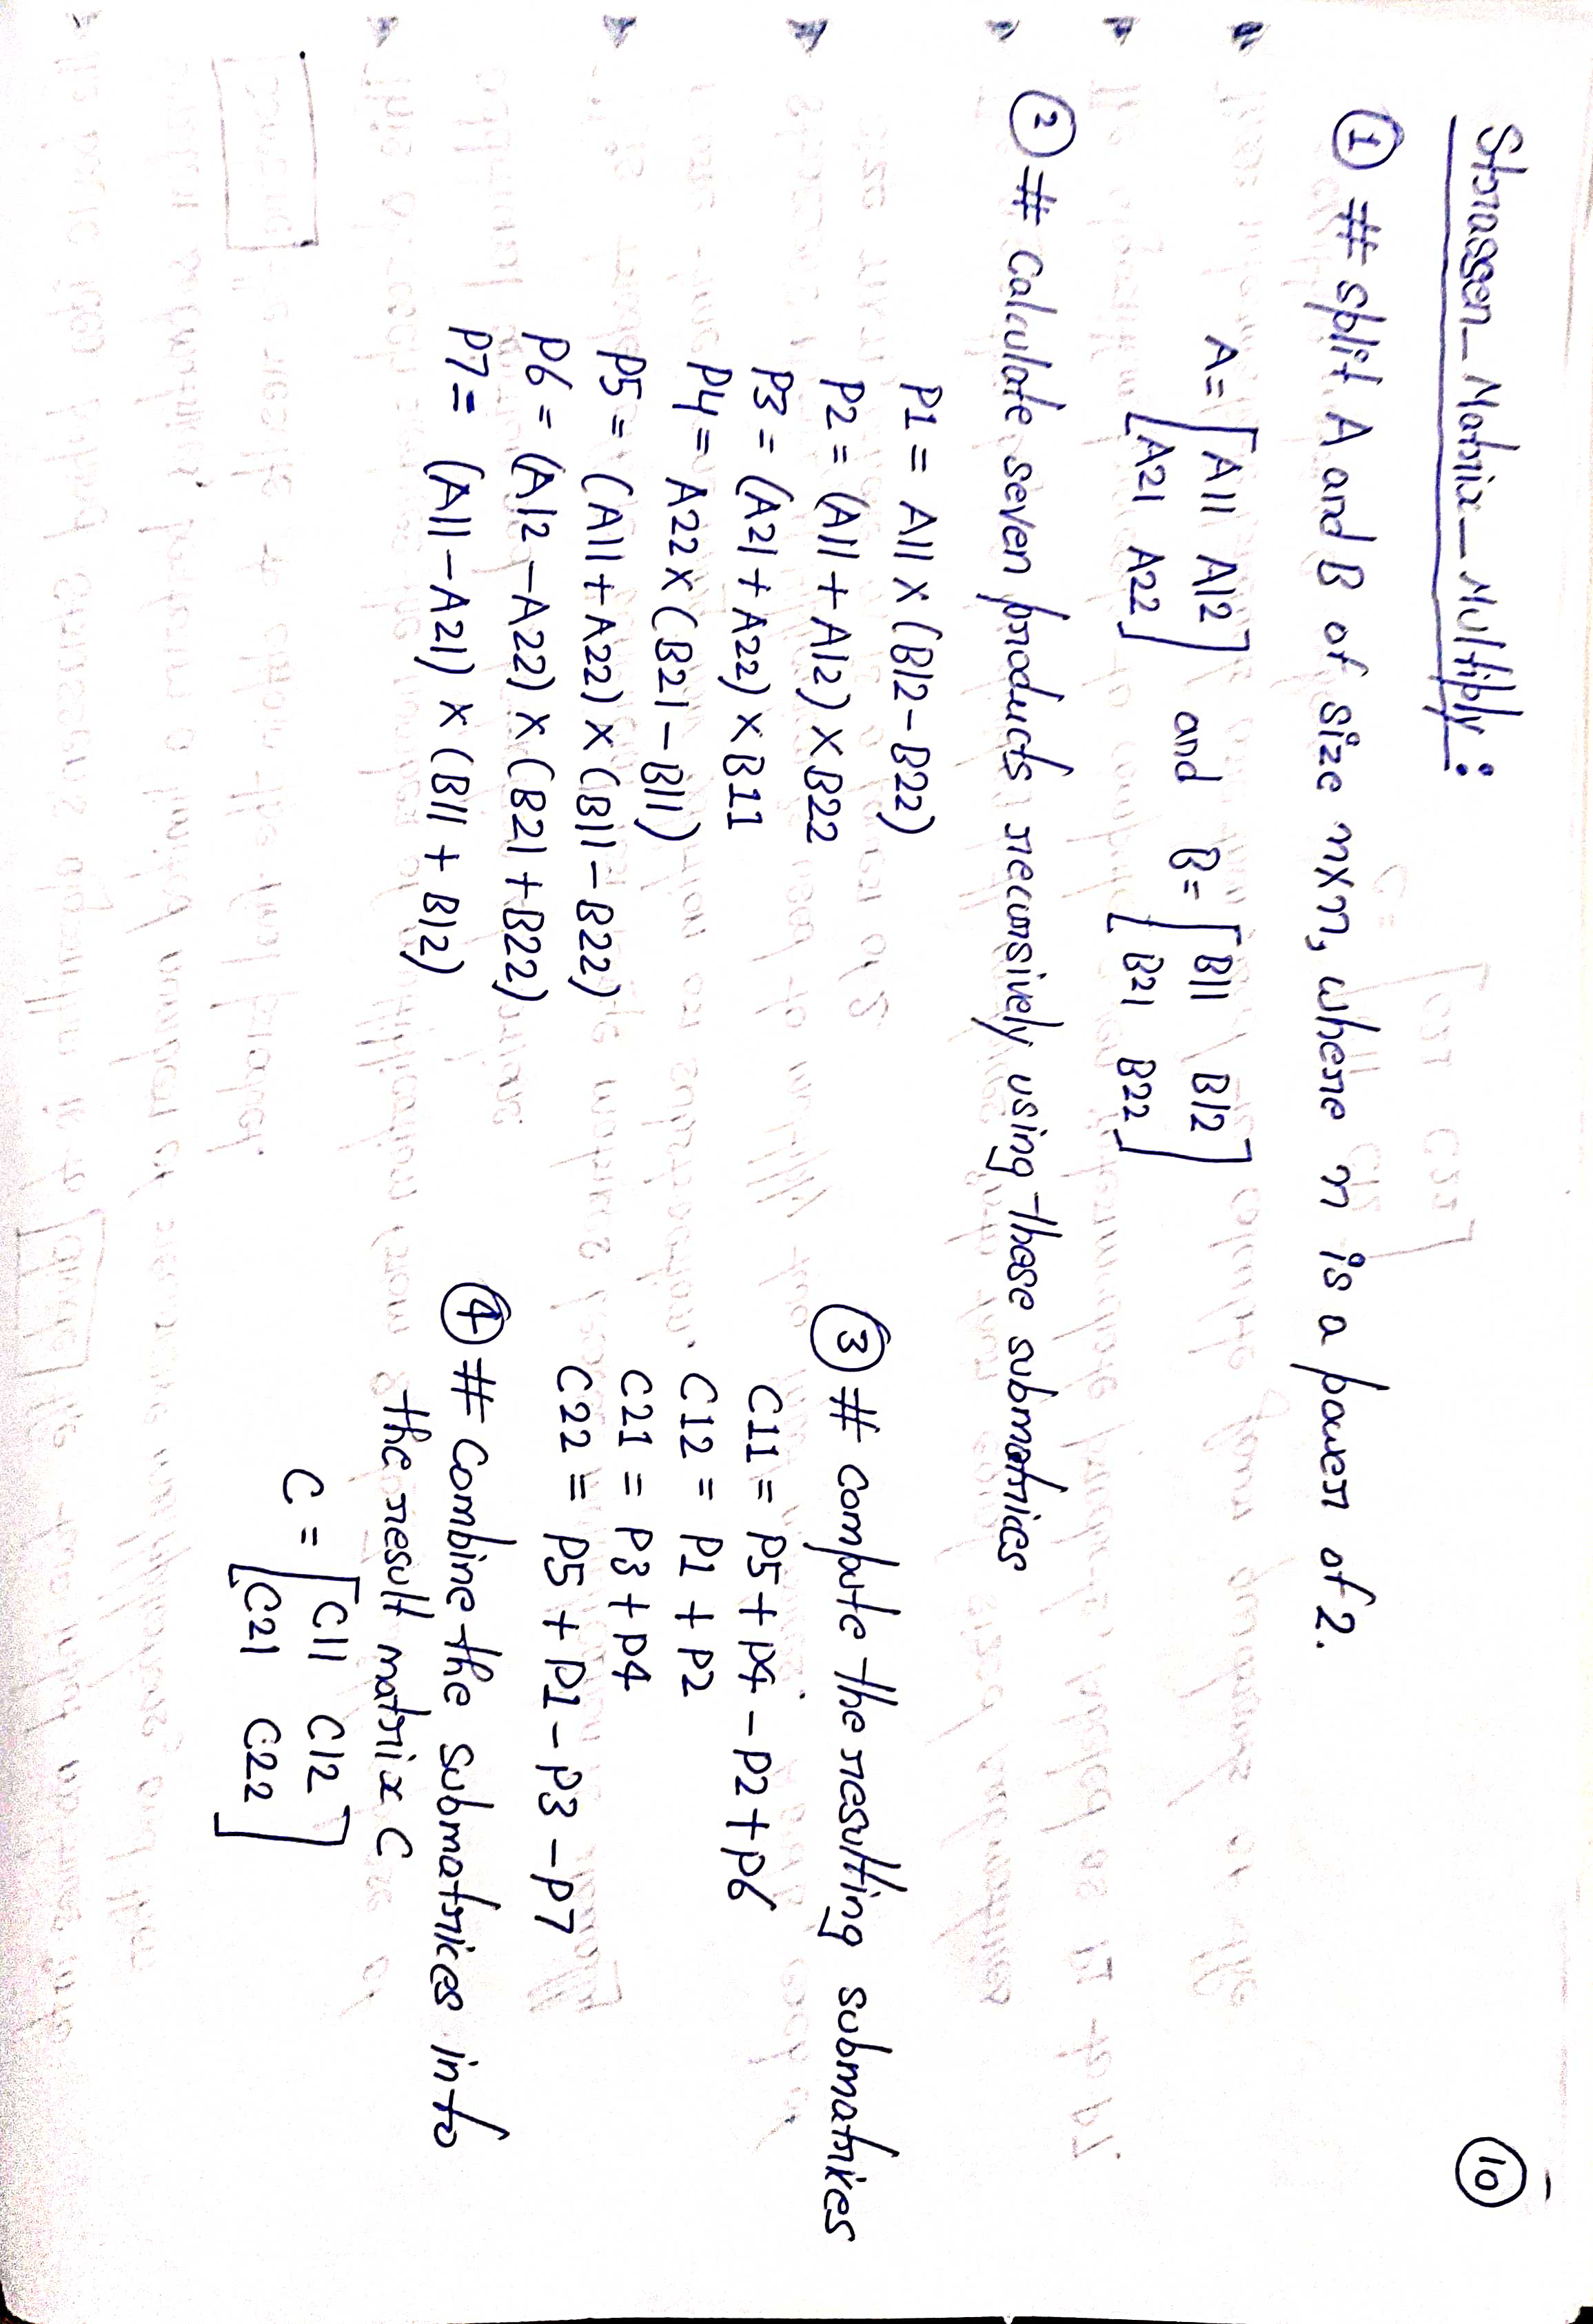 10
Strassen_Matrix_Multiply:
1 # split A and B of size nxn, where n is a power of 2.
A = [A11 A12
A21 A22] and B = [B11 B12
B21 B22]
2 # Calculate seven products recursively using these submatrices
P1 = A11 x (B12-B22)
P2 = (A11 + A12) x B22
P3 = (A21 + A22) x B11
P4 = A22 x (B21-B11)
P5 = (A11 + A22) x (B11-B22)
P6 = (A12-A22) x (B21+B22)
P7 = (A11-A21) x (B11 + B12)
3 # compute the resulting submatrixes
C11 = P5 + P4 - P2 + P6
C12 = P1 + P2
C21 = P3 + P4
C22 = P5 + P1 - P3 - P7
4 # Combine the submatrixes into
the result matrix C
C = [C11 C12
C21 C22]